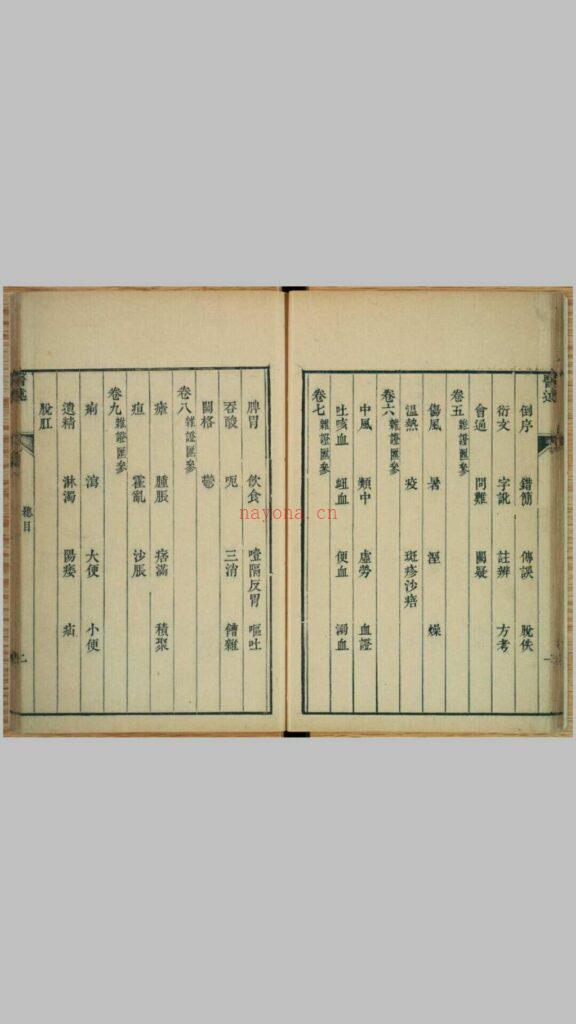 倒序 錯簡 傳誤 脫佚
衍文 字說 註辨 方考
會通 問難 闕疑
卷五雜證匯參
傷風 暑 溼 燥
溫熱 疫 斑疹沙㾦
卷六雜證匯參
中風 類中 虛勞 血證
吐咳血 衄血 便血 溺血
卷七雜證匯參
脾胃 飲食 噎膈反胃 嘔吐
吞酸 呃 三消 嘈雜
關格 鬱
卷八雜證匯參
瘧 腫脹 痞滿 積聚
疸 霍亂 沙脹
卷九雜證匯參
痢 瀉 大便 小便
遺精 淋濁 陽痿 疝
脫肛
醫述
總目
二
nayona.cn